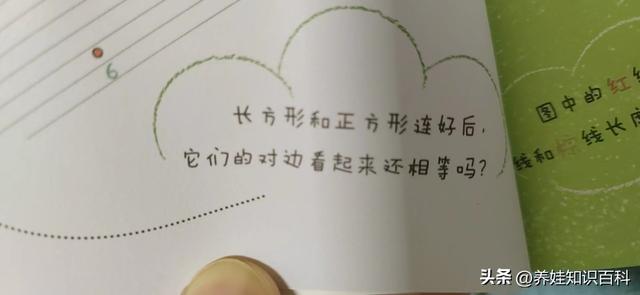 6
长方形和正方形连好后,
它们的对边看起来还相等吗?
图中的红
线和棕线长
头条 @养娃知识百科